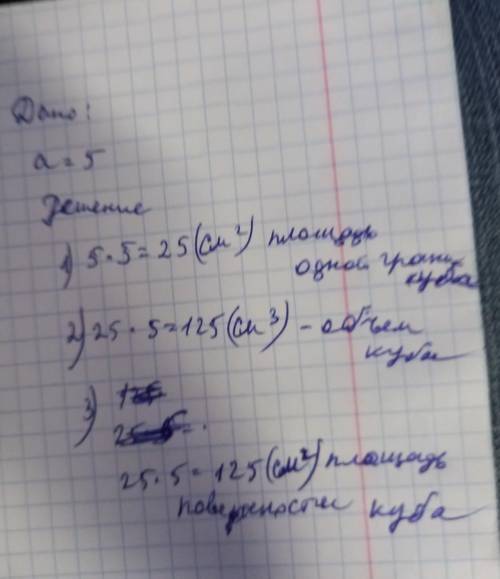 Дано:
a = 5
Решение
1) 5 · 5 = 25 (см²) площадь
одной грани
куба
2) 25 · 5 = 125 (см³) - объем
куба
3)
25 · 5 = 125 (см²) площадь
поверхности куба